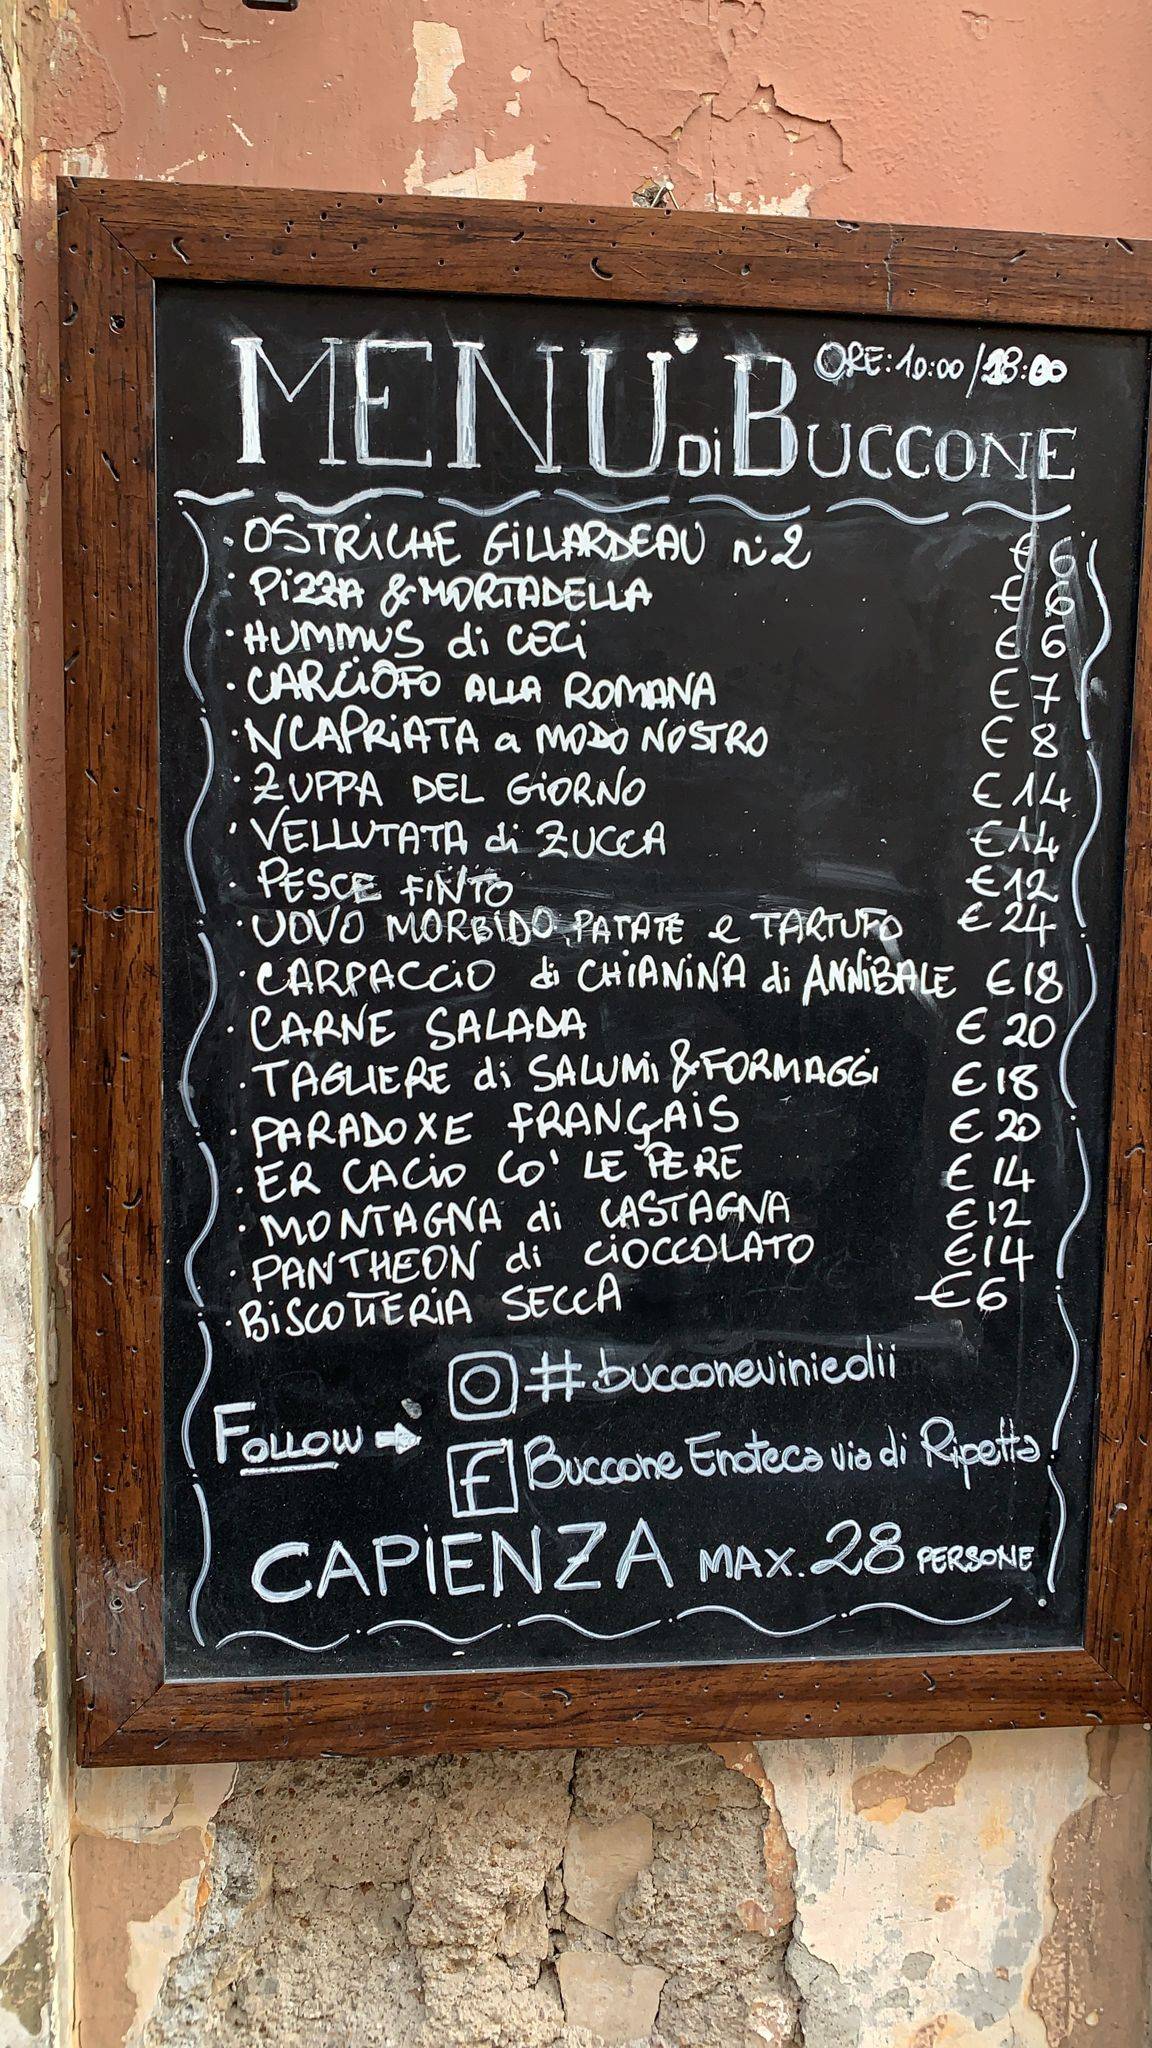 MENU' DI BUCCONE
ORE: 10:00/18:00
• OSTRICHE GILLARDEAU n°2 € 6
• PIZZA & MORTADELLA € 6
• HUMMUS di CECI € 6
• CARCIOFO ALLA ROMANA € 7
• NCAPRIATA a MODO NOSTRO € 8
• ZUPPA DEL GIORNO € 14
• VELLUTATA di ZUCCA € 14
• PESCE FINTO € 12
• UOVO MORBIDO, PATATE e TARTUFO € 24
• CARPACCIO di CHIANINA di ANNIBALE € 18
• CARNE SALADA € 20
• TAGLIERE di SALUMI & FORMAGGI € 18
• PARADOXE FRANÇAIS € 20
• ER CACIO CO' LE PERE € 14
• MONTAGNA di CASTAGNA € 12
• PANTHEON di CIOCCOLATO € 14
• BISCOTTERIA SECCA € 6
#.bucconevinieolii
FOLLOW
f Buccone Enoteca via di Ripetta
CAPIENZA MAX. 28 PERSONE